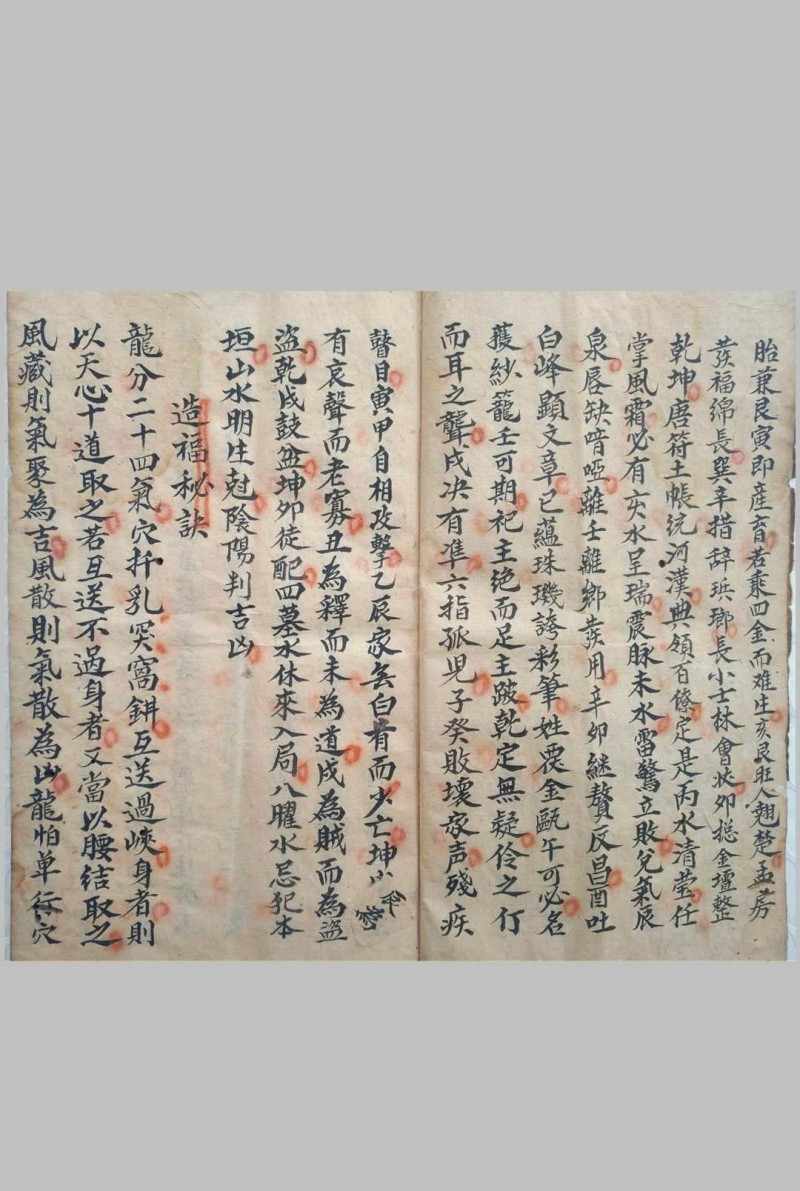 胎兼艮寅即産畜若乘四金而难庄亥艮旺人翹楚孟房
發福綿長巽辛措辞班聯長小士林會狀卯摠金壇整
乾坤唐符土帳统河漢典領百僚定是丙水清莹任
掌風霜必有亥水呈瑞震脉未水雷驚立敗兌氣辰
泉唇缺喑啞離壬離鄉發用辛卯継贅反昌酉吐
白峰顯文章已蘊珠璣誇彩筆姓覆金甌午可必名
護紗籠壬可期祀主绝而足主跛乾定無疑伶之仃
而耳之聾戌决有准六指孤児子癸敗壞家声殘疾
瞽目寅甲自相攻擊乙辰家無白首而少亡坤山
有哀聲而老寡丑為釋而未為道戌為賊而為盜
盜乾戌鼓盆坤卯徒配四墓水休來入局八曜水忌犯本
垣山水明庄尅陰陽判吉凶
造福秘訣
龍分二十四氣穴扦乳突窩鉗互送過峽身者則
以天心十道取之若互送不過身者又當以腰结取之
風藏則氣聚為吉風散則氣散為凶龍怕单行穴